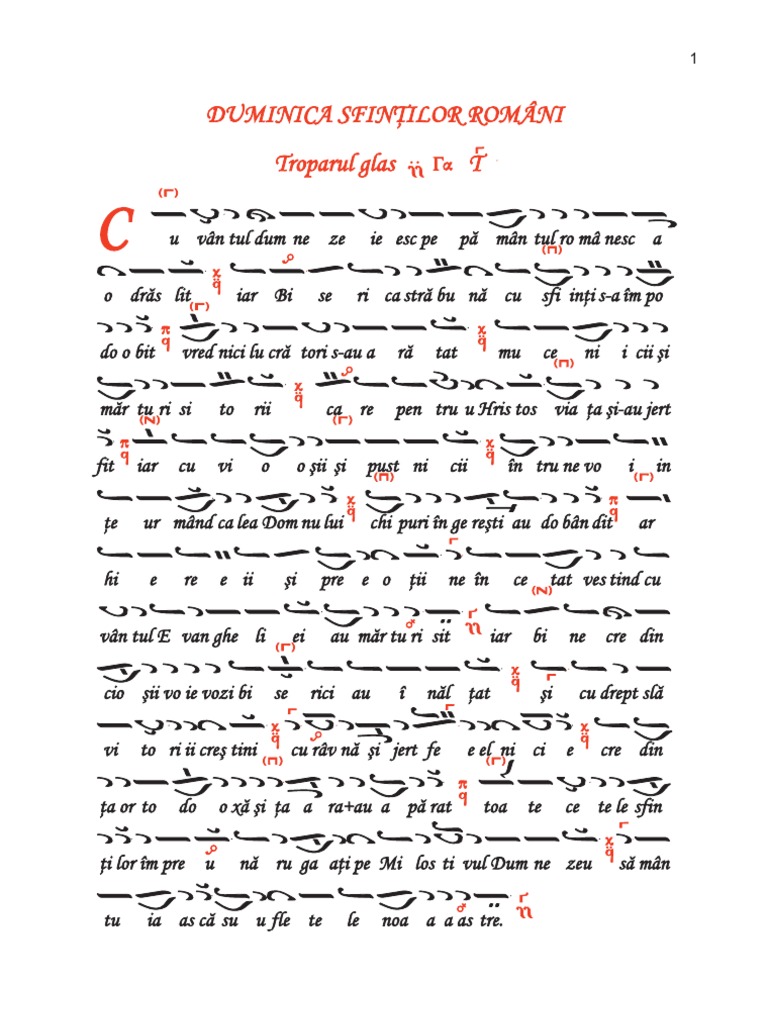 1
DUMINICA SFINȚILOR ROMÂNI
Troparul glas Γα
C
u vân tul dum ne ze ie esc pe pă mân tul ro mâ nesc a
o drăs lit iar Bi se ri ca stră bu nă cu sfi inți s-a îm po
do o bit vred nici lu cră tori s-au a ră tat mu ce ni i cii și
măr tu ri si to rii ca re pen tru u Hris tos via ța și-au jert
fit iar cu vi o o șii și pust ni cii în tru ne vo i in
țe ur mând ca lea Dom nu lui chi puri în ge rești au do bân dit ar
hi e re e ii și pre e o ții ne în ce tat ves tind cu
vân tul E van ghe li ei au măr tu ri sit iar bi ne cre din
cio șii vo ie vozi bi se rici au î năl țat și cu drept slă
vi to ri ii creș tini cu râv nă și jert fe e el ni ci e cre din
ța or to do o xă și ța a ra+au a pă rat toa te ce te le sfin
ți lor îm pre u nă ru ga ați pe Mi los ti vul Dum ne zeu să mân
tu ia as că su u fle te le noa a a as tre.